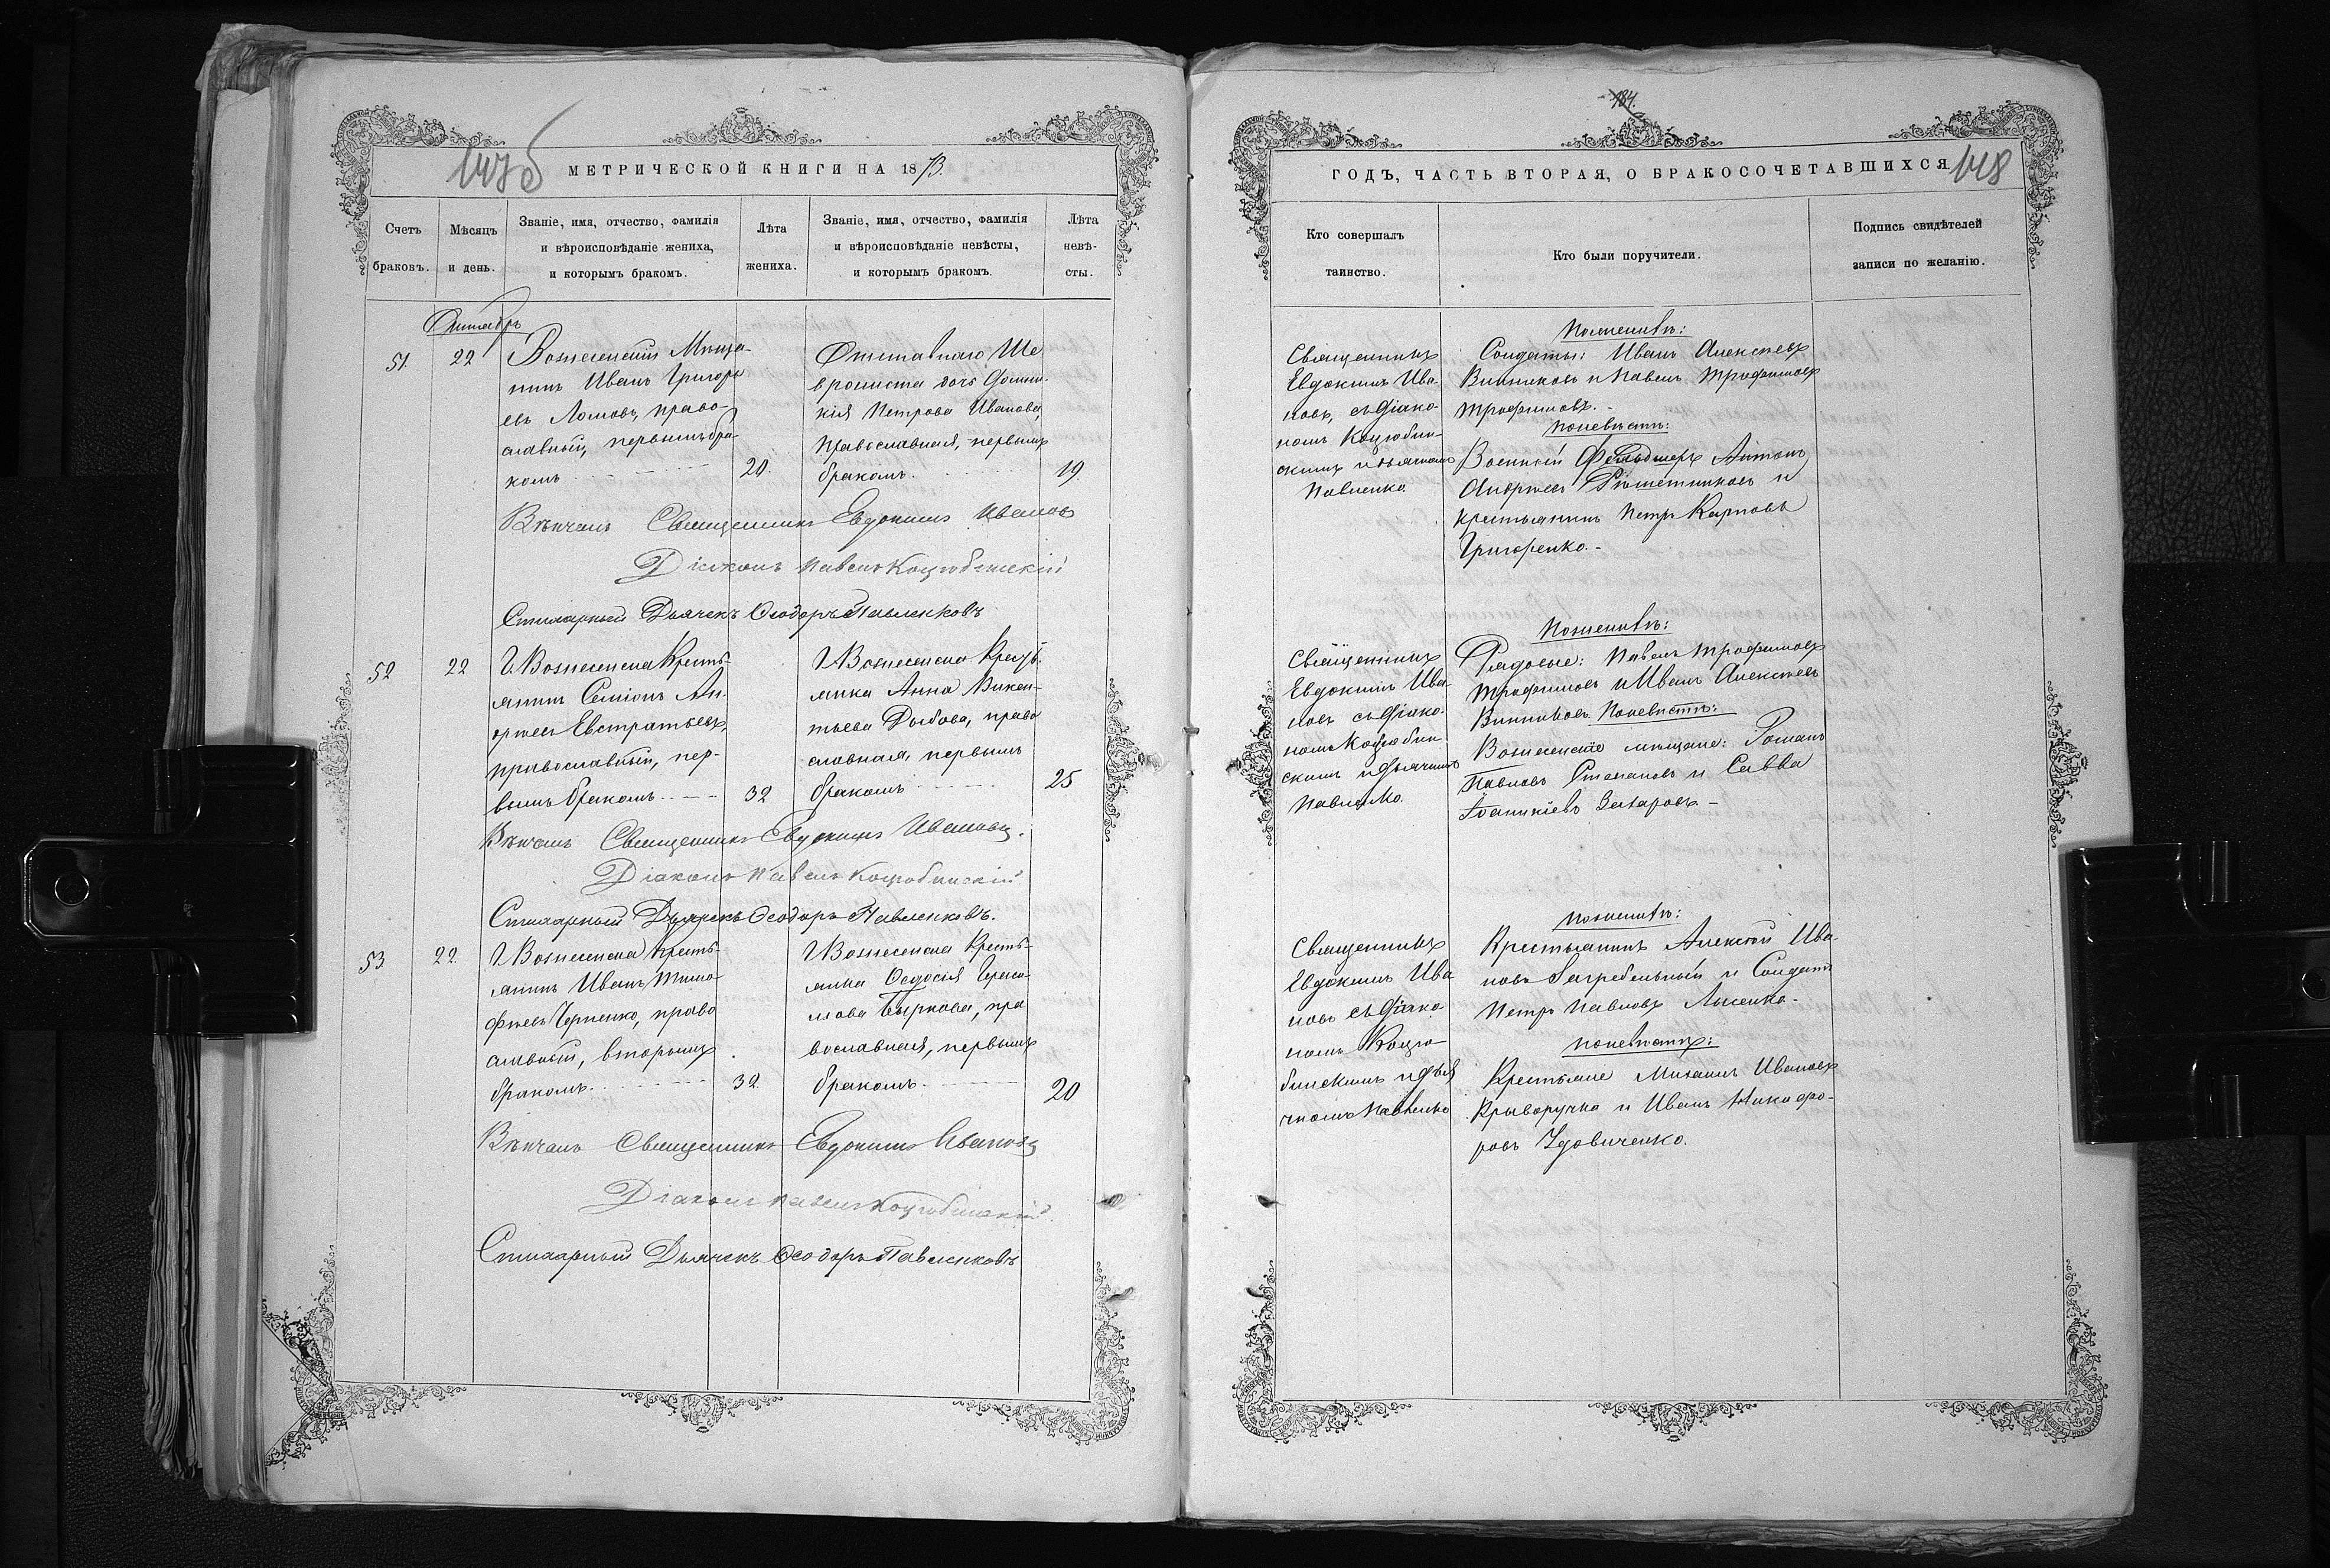 147б
МЕТРИЧЕСКОЙ КНИГИ НА 1873.
Счетъ браковъ.
Мѣсяцъ и день.
Званіе, имя, отчество, фамилія и вѣроисповѣданіе жениха, и которымъ бракомъ.
Лѣта жениха.
Званіе, имя, отчество, фамилія и вѣроисповѣданіе невѣсты, и которымъ бракомъ.
Лѣта невѣ-сты.
Октябръ
51.
22
Вознесенскій Мѣща-
нинъ Иванъ Григорь
евъ Ломовъ, право-
славный, первымъ бра-
комъ
20.
Отставнаго Ше
врониста дочь
кія Петрова Иванова,
Православная, первымъ
бракомъ.
19.
Вѣнчалъ Священникъ Евдокимъ Ивановъ
Діаконъ Павелъ Коцюбинскій
Стихарный Дьячекъ Ѳеодоръ Павленковъ
52
22
Г. Вознесенска Кресть-
янинъ Семіонъ Ан-
дреевъ Евстратьевъ,
православный, пер-
вымъ бракомъ
32
Г. Вознесенска Кресть-
янка Анна Викен-
тьева Дыбова, право
славная, первымъ
бракомъ
25
Вѣнчалъ Священникъ Евдокимъ Ивановъ.
Діаконъ Павелъ Коцюбинскій
Стихарный Дьячекъ Ѳеодоръ Павленковъ.
53.
22.
Г. Вознесенска Кресть-
янинъ Иванъ Тимо-
фѣевъ Черненко, право
славный, вторымъ
бракомъ.
32
Г. Вознесенска Кресть-
янка Ѳедосія Гераси-
мова Быркова, пра
вославная, первымъ
бракомъ.
20
Вѣнчалъ Священникъ Евдокимъ Ивановъ
Діаконъ Павелъ Коцюбинскій.
Стихарный Дьячекъ Ѳеодоръ Павленковъ
184.
ГОДЪ, ЧАСТЬ ВТОРАЯ, О БРАКОСОЧЕТАВШИХСЯ
148
Кто совершалъ таинство.
Кто были поручители.
Подпись свидѣтелей записи по желанію.
Священникъ
Евдокимъ Ива-
новъ, съ Діако-
номъ Коцюбин-
скимъ и дьячкомъ
Павленко.
По женихѣ:
Солдаты: Иванъ Алексѣевъ
Винниковъ и Павелъ Трофимовъ
Трофимовъ.-
По невѣстѣ:
Военный Фельдшеръ Антонъ
Андреевъ Рѣшетниковъ и
крестьянинъ Петръ Карповъ
Григоренко.-
Священникъ
Евдокимъ Ива-
новъ съ Діако-
номъ Коцюбин-
скимъ и дьячкомъ
Павленко.
По женихѣ:
Рядовые: Павелъ Трофимовъ
Трофимовъ и Иванъ Алексѣевъ
Винниковъ. По невѣстѣ:
Вознесенскіе мѣщане: Романъ
Павловъ Степановъ и Савва
Іоанникіевъ Захаровъ.-
Священникъ
Евдокимъ Ива
новъ съ Діако-
номъ Коцю-
бинскимъ и дья
чкомъ Павленко
По женихѣ:
Крестьянинъ Алексѣй Ива-
новъ Загребельный и Солдатъ
Петръ Павловъ Лысенко.-
По невѣстѣ:
Крестьяне Михаилъ Ивановъ
Крыворучка и Иванъ Никифо-
ровъ Удовиченко.